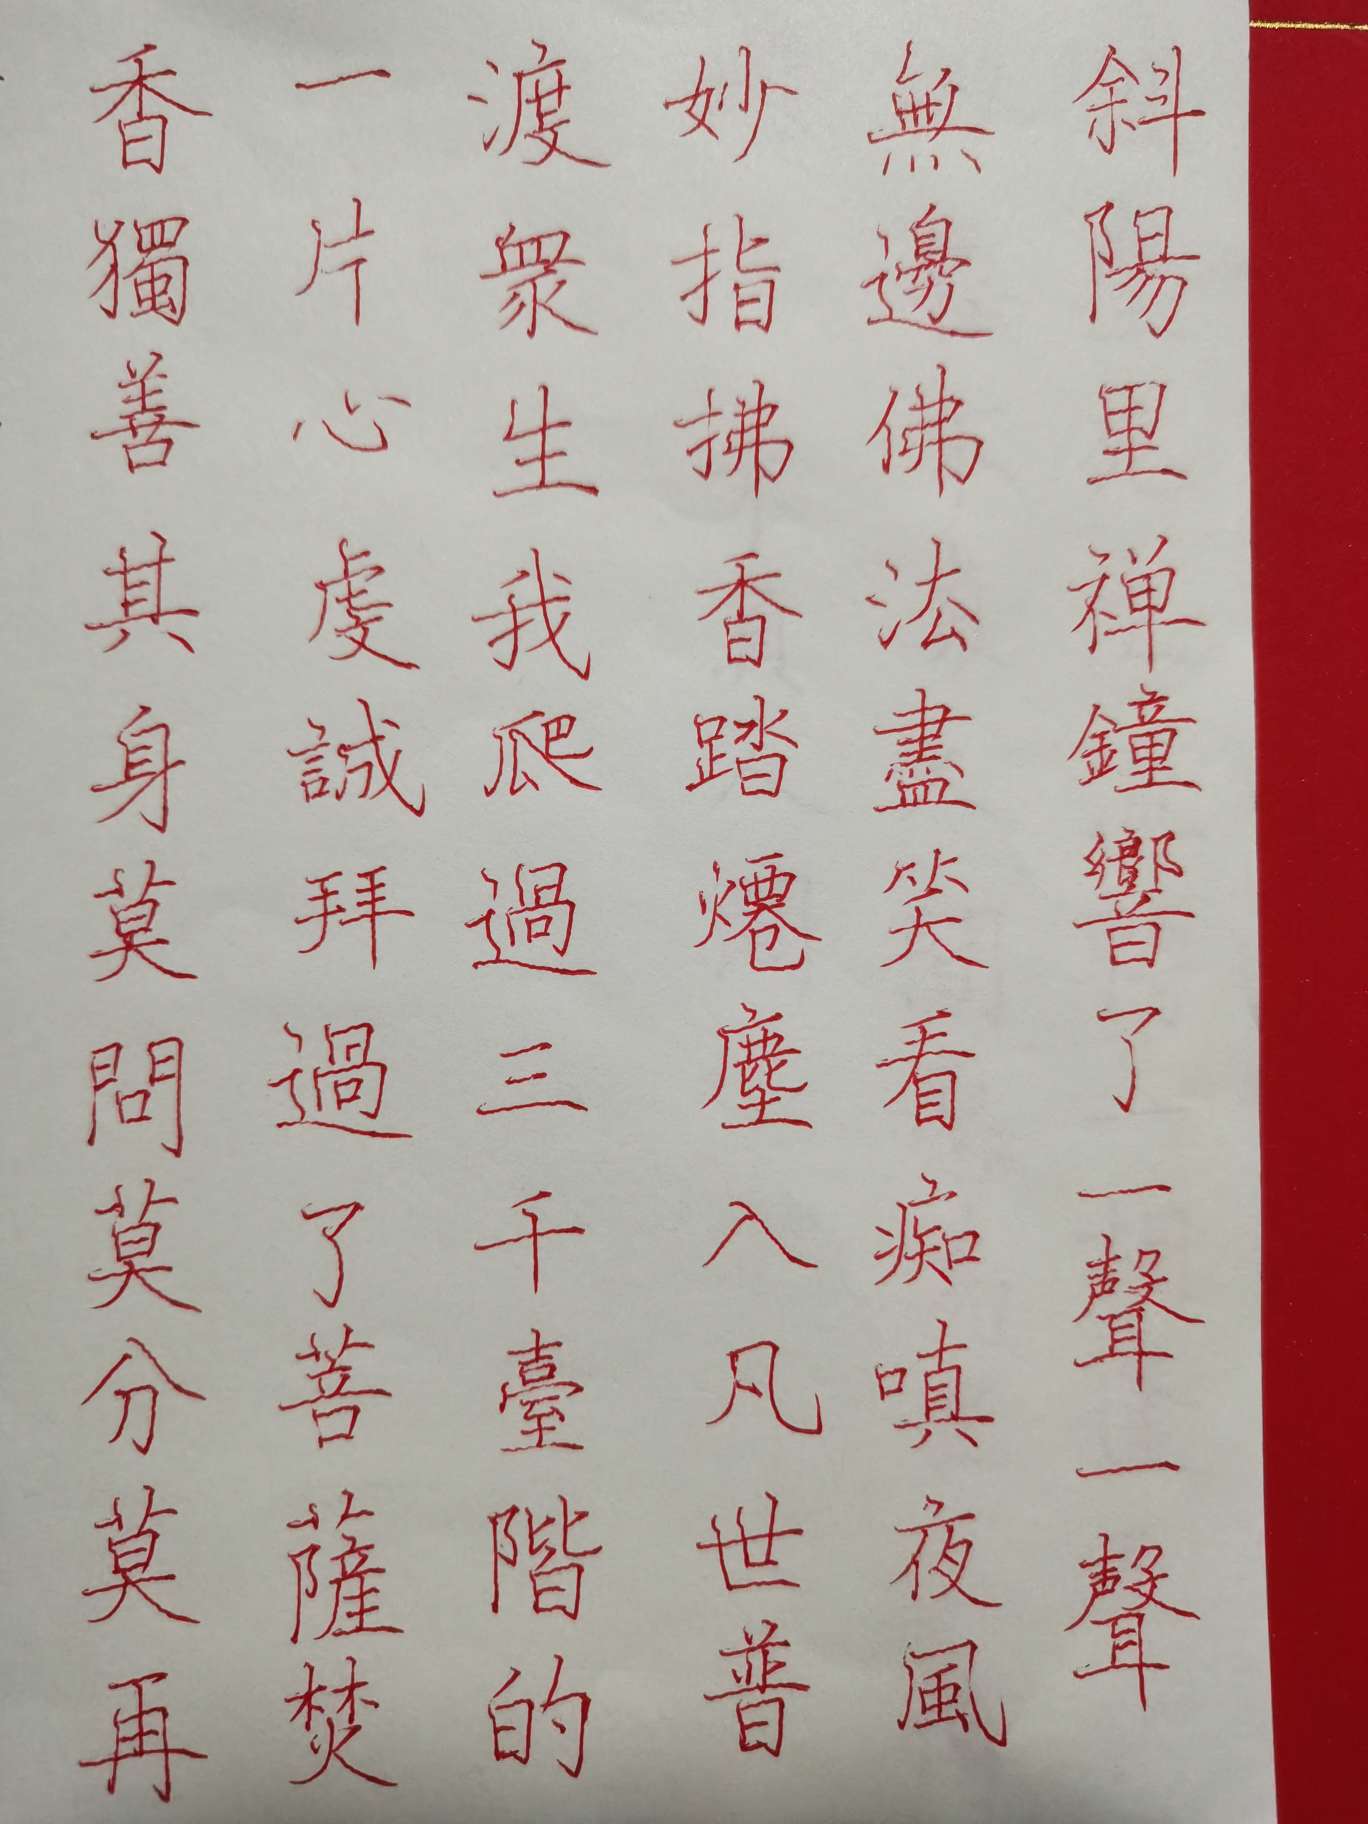 斜陽里禅鐘響了一聲一聲
無邊佛法盡笑看痴嗔夜風
妙指拂香踏煙塵入凡世普
渡眾生我爬過三千臺階的
一片心虔誠拜過了菩薩焚
香獨善其身莫問莫分莫再